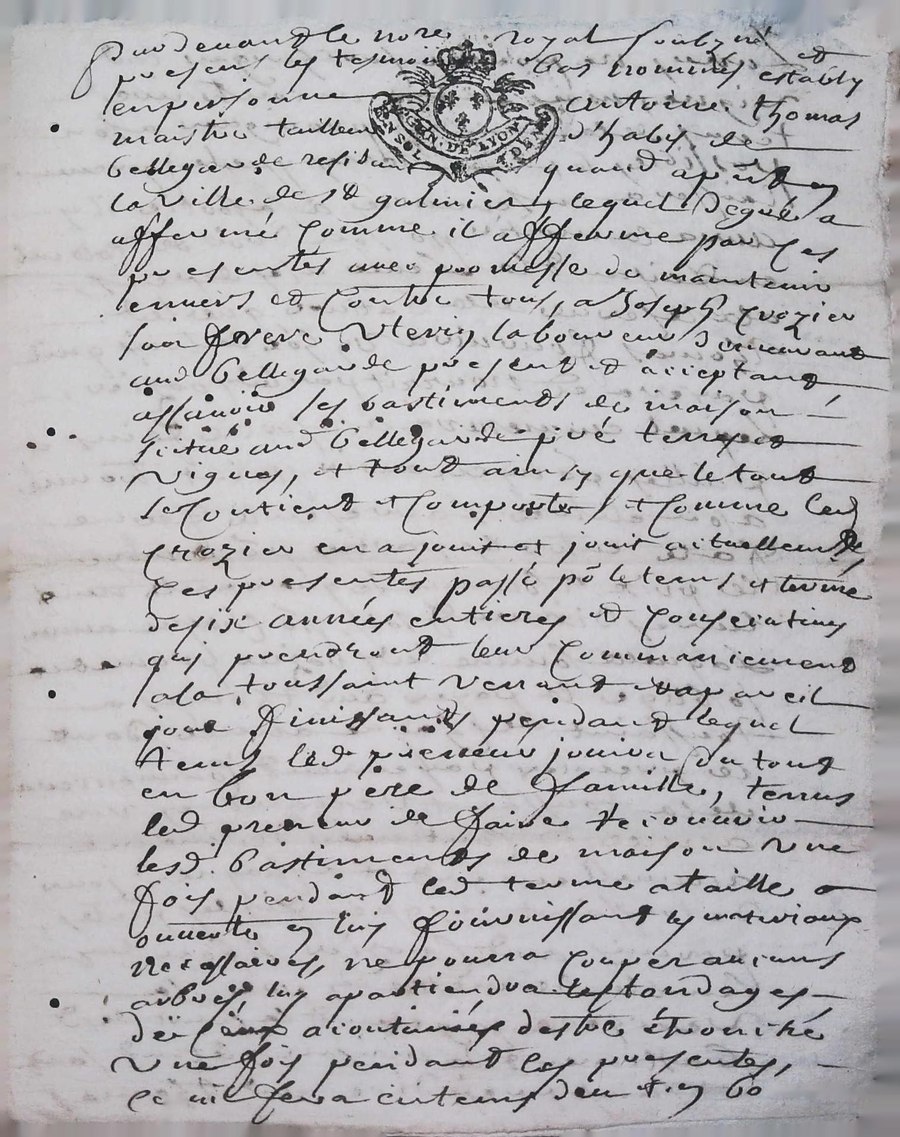 Pardevant le nore royal soubzné et
presens les tesmoins bas nommés estably
en personne antoine thomas
maistre tailleur d'habis de
bellegarde residant quand apnt en
la ville de st galmier, lequel de gré a
affermé comme il afferme par ces
presentes avec promesse de maintenir
envers et contre tous, a Joseph crozier
son frere uterin laboureur demeurant
aud bellegarde present et acceptant
assavoir ses bastiments de maison
scitué aud bellegarde pré terres et
vignes, et tout ainsy que le tout
se contient et comporte, et comme led
crozier en a jouit et jouit actuellement
ces presentes passé pr le tems et terme
de six années entieres et consecutives
qui prendront leur commancement
a la toussaint venant pareil
jour finissant pendant lequel
tems led preneur jouira du tout
en bon père de famille, tenus
led preneur de faire recouvrir
lesd. bastiments de maison une
fois pendant led. terme a taille
ouverte en luy fournissant les materiaux
necessaires, ne pourra couper aucuns
arbres, luy apartiendra les tondages
de ceux acoutumés destre étronché
une fois pendant les presentes,
ce qui sera en tems deu